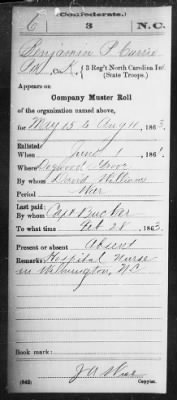 (Confederate.)
C 3 N.C.
Benjamin P. Currie
Pvt, Co. K, 3 Reg't North Carolina Inf.
(State Troops.)
Appears on
Company Muster Roll
of the organization named above,
for May 13 to Aug 11, 1863.
Enlisted:
When June 1, 186
Where Dogwood Grove
By whom David Williams
Period War
Last paid:
By whom Capt
To what time Feb 28, 1863
Present or absent Absent
Remarks: Hospital Nurse
in Wilmington, N.C.
Book mark:
J A
(642) Copyist.